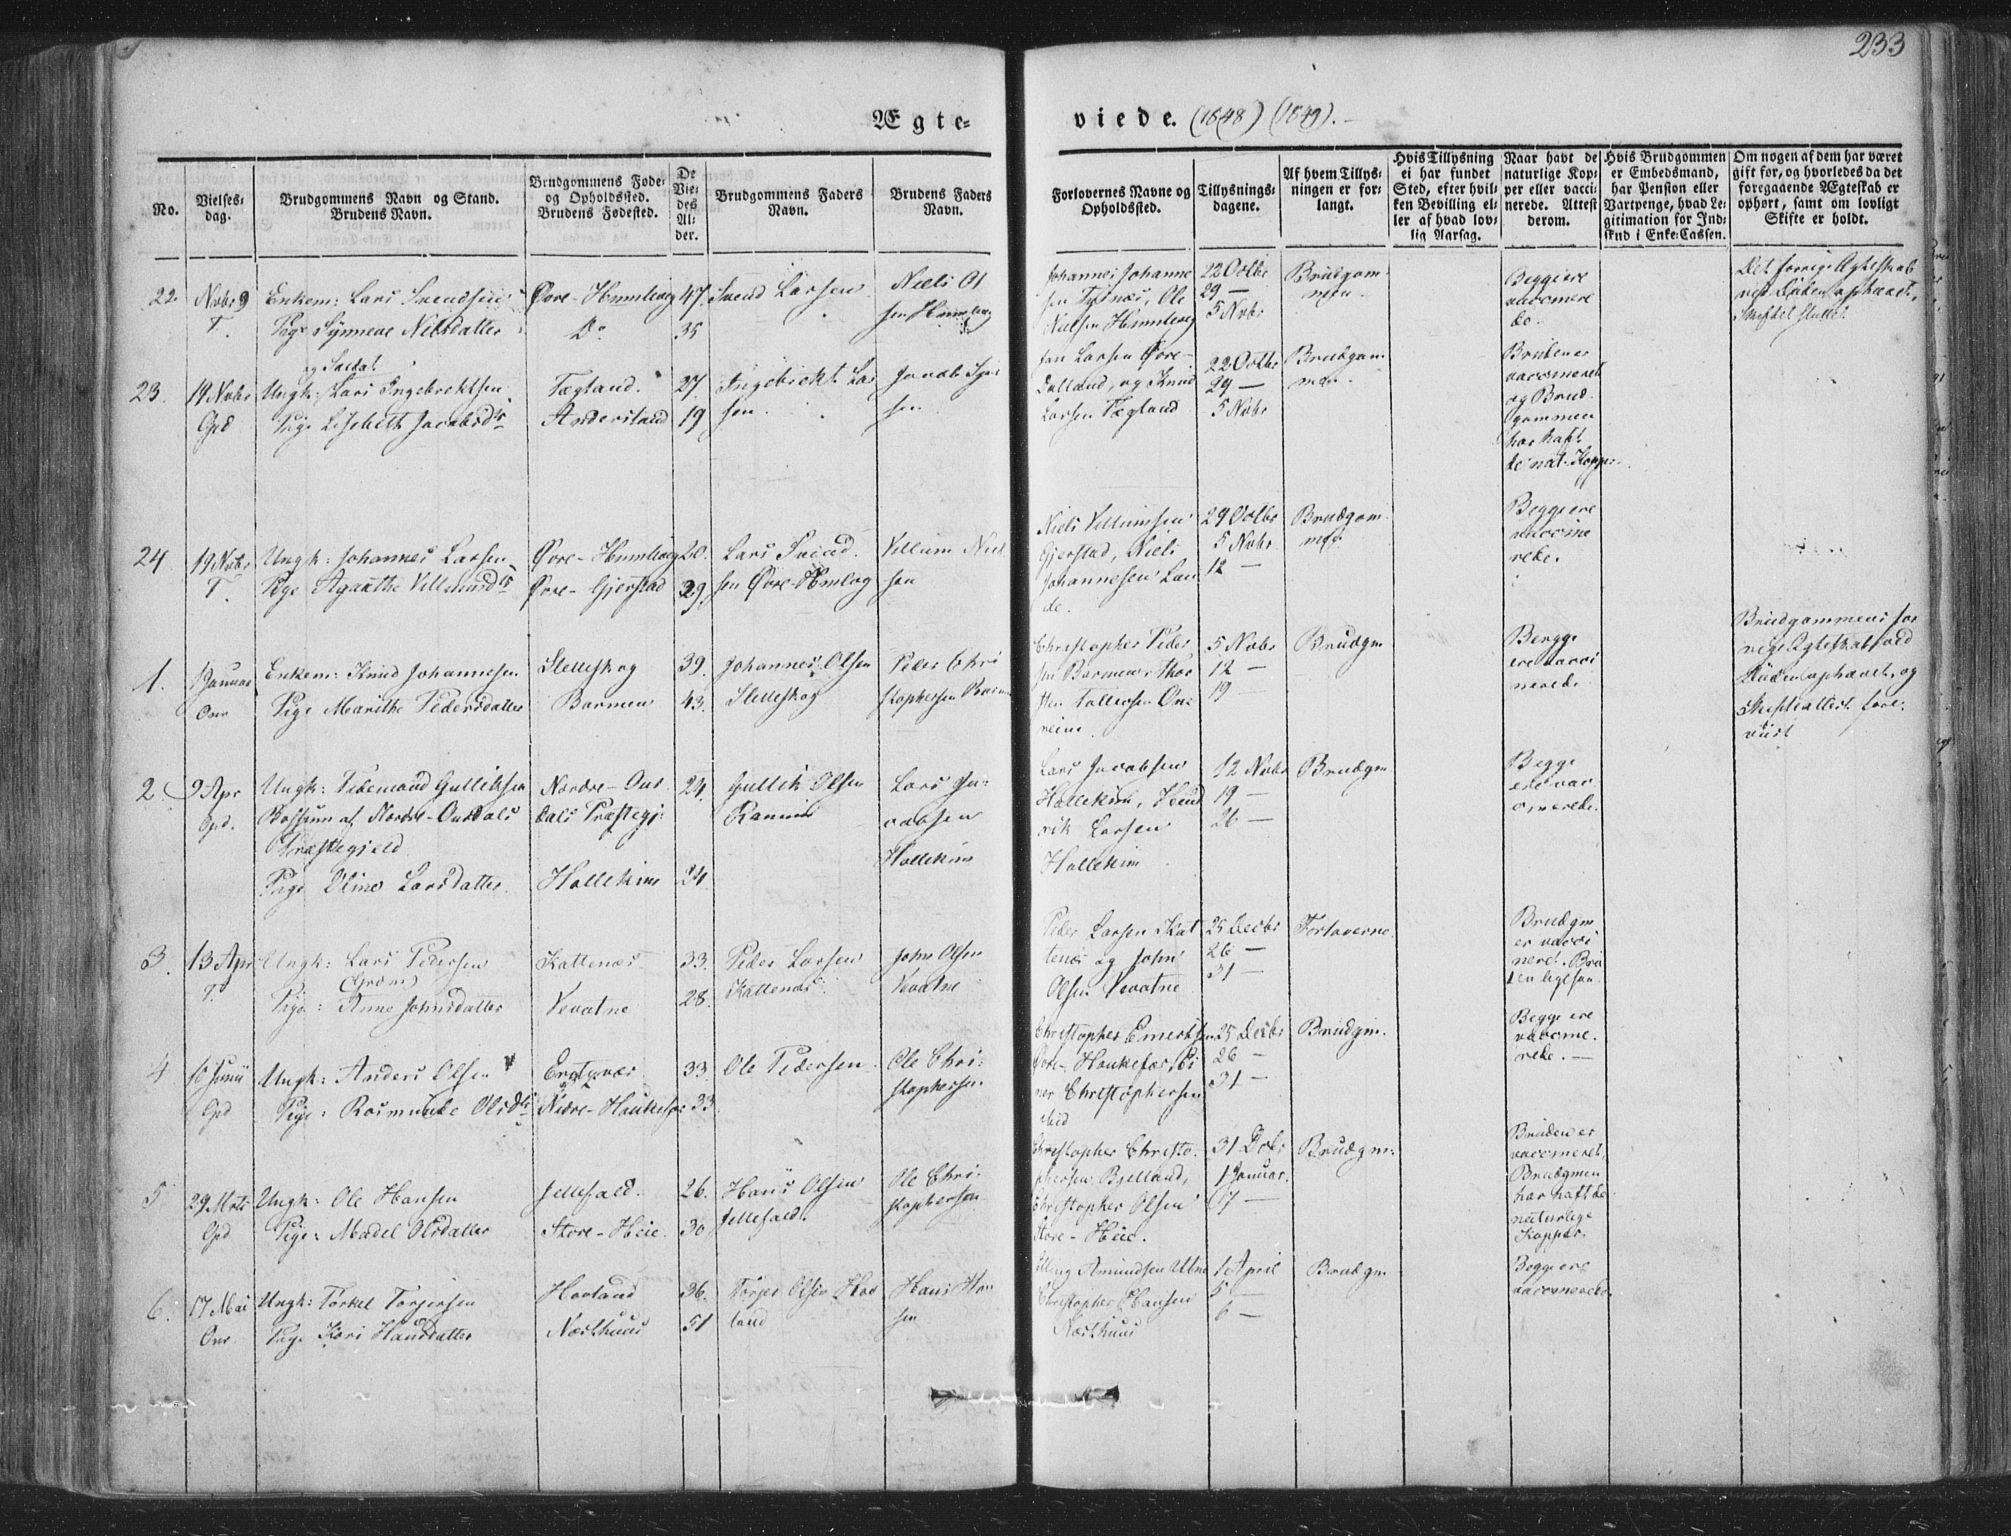 233
Ægte-
viede. (1848) (1849).
No.
Vielses-
dag.
Brudgommens Navn og Stand.
Brudens Navn.
Brudgommens Føde-
og Opholdssted.
Brudens Fødested.
De
Vie-
des
Al-
der.
Brudgommens Faders
Navn.
Brudens Faders
Navn.
Forlovernes Navne og
Opholdssted.
Tillysnings-
dagene.
Af hvem Tillys-
ningen er for-
langt.
Hvis Tillysning
ei har fundet
Sted, efter hvil-
ken Bevilling el-
ler af hvad lov-
lig Aarsag.
Naar havt de
naturlige Kop-
per eller vacci-
nerede. Attest
derom.
Hvis Brudgommen
er Embedsmand,
har Pension eller
Vartpenge, hvad Le-
gitimation for Ind-
skud i Enke-Cassen.
Om nogen af dem har været
gift før, og hvorledes da det
foregaaende Ægteskab er
ophørt, samt om lovligt
Skifte er holdt.
22.
Novbr 9
T.
Enkem: Lars Svendsen
Pige Synneve Nilsdatter
Øvre-Hemmelveg
Do
47.
35
Svend Larsen
Niels Ol
sen
Johannes Johanne
sen Tysnæs, Ole
Nielsen
22 Octbr
29 —
5 Novbr
Brudgom
men.
Begge ere
vaccinere
de.
Det forrige Ægteskab
ved Døden ophævet,
Skiftet sluttet.
23.
19 Novbr
Gjd
og Soldat
Ungk: Lars Ingebrektsen
Pige Lisebeth Jacobsdtr
Tægland.
Anderstand
27.
19
Ingebrekt Lar
sen.
Jacob
sen
Larsen Øvre-
Dalland, og Knud
Larsen Tægland
22 Octbr
29 —
5 Novbr
Brudgom
men.
Bruden er
vaccineret
og Brud
gommen
har haft
de nat. Kopper.
24.
19 Novbr
T.
Ungk: Johannes Larsen
Pige Agaathe Villumsdtr
Øvre-
Øvre-Gjerstad
20.
29.
Lars Svend
sen Øvre-
Villum Niel
sen
Niels Villumsen
Gjerstad, Niels
Johannesen Lan
de.
29 Octbr
5 Novbr
12 —
Brudgom
men
Begge ere
vaccine
rede.
1.
1 Januar
Enkem: Knud Johannesen
Pige Marithe Pedersdatter
Sletteskog
Barmen
39.
43.
Johannes Olsen
Sletteskog
Peder Chri
stophersen
Christopher Peder
sen Barmen, Thor
sten
5 Novbr
12 —
19 —
Brudgm
Begge
ere vacci
nerede.
Brudgommens for
rige Ægteskab ved
Døden ophævet, og
Skifteattest fore-
viist
2.
9 Apr
Gjd.
Ungk: Tidemand Gulliksen
af Nordre-Ourdals
Præstegjeld
Pige Oline Larsdatter.
Nordre-Our
dals Præstegj:
Hallekim
24.
24.
Gullik Olsen
Lars Ja-
cobsen
Hallekim
Lars Jacobsen
Hallekim, Hend
rik Larsen
Hallekim
12 Novbr
19 —
26 —
Brudgm
Begge
ere vac
cinerede.
3.
13 Apr
T.
Ungk: Lars Pedersen
Pige: Anne Johnsdatter
Kattenæs
Vevatne
33.
28.
Peder Larsen
Kattenæs
John Olsen
Vevatne
Peder Larsen Kat
tenæs og John
Olsen Vevatne
25 Decbr
26 —
31 —
Forloverne
Brudgm
er vacci
neret. Bru
den ligesaa.
4
10 Junii
Gjd
Ungk: Anders Olsen
Pige: Rosmunde Olsdtr
Nedre-Haukefær
33.
33
Ole Pedersen
Ole Chri-
stophersen
Christopher
Øvre-Haukefær,
ner Christophersen
25 Decbr
26 —
31 —
Brudgm.
Begge ere
vaccine-
rede. —
5
29 Mrts
Gjd
Ungk: Ole Hansen
Pige: Madel Olsdatter
Jellefald.
Store-Heie.
26.
30
Hans Olsen
Jellefald.
Ole Chri-
stophersen
Christopher Christo-
phersen Bjelland,
Christopher Olsen
Store-Heie.
31 Decbr
1 Januar.
17 —
Brudgm:
Bruden er
vaccineret.
Brudgmen
har haft de
naturlige
Kopper.
6.
17 Mai
Ungk: Torkel Torjersen
Pige Kari Hansdatter
Hovland
Næsthuus
36.
51
Torjer Olsen Hov
land
Hans Han
sen
Elling Amundsen
Christopher Hansen
Næsthuus
1 April
5 —
6 —
Brudgm
Begge ere
vaccinerede.